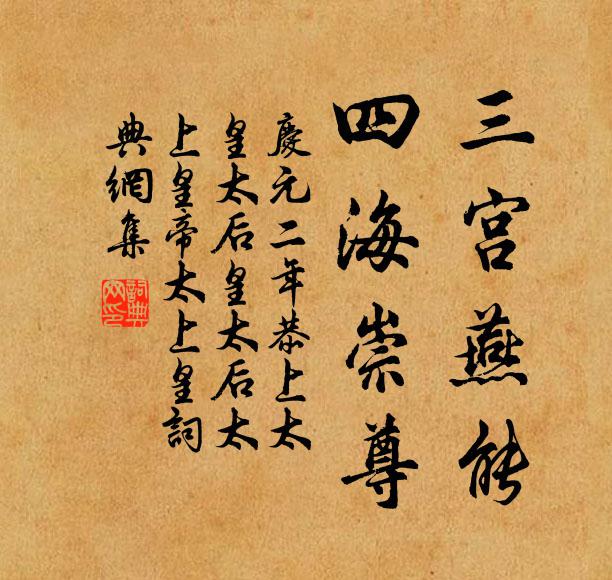 三宫燕能
四海崇尊
慶元二年恭上太
皇太后皇太后太
上皇帝太上皇詞
典網集
詞典
網印